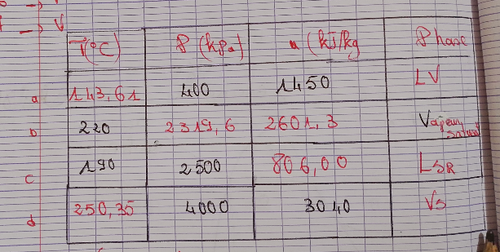 → V
T(°C) P (kPa) u (kJ/kg Phase
a 143,61 400 1450 LV
b 220 2319,6 2601,3 Vapeur
c 190 2500 806,00 LSR
d 250,35 4000 3040 VS